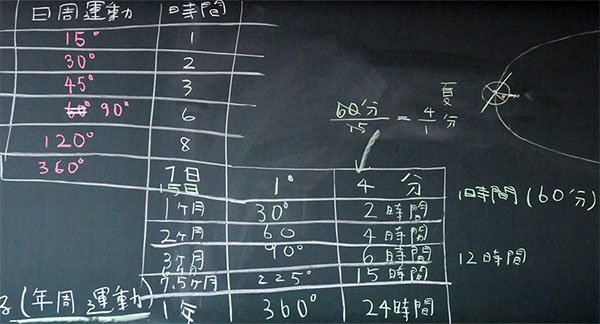 日周運動 時間
15° 1
30° 2
45° 3
90° 6
120° 8
360° 1日
夏
60分/15 = 4/1分
15日
1° 4分
1時間(60分)
1ヶ月 30° 2時間
2ヶ月 60 4時間
3ヶ月 90° 6時間
12時間
7.5ヶ月 225° 15時間
(年周運動)
1年 360° 24時間